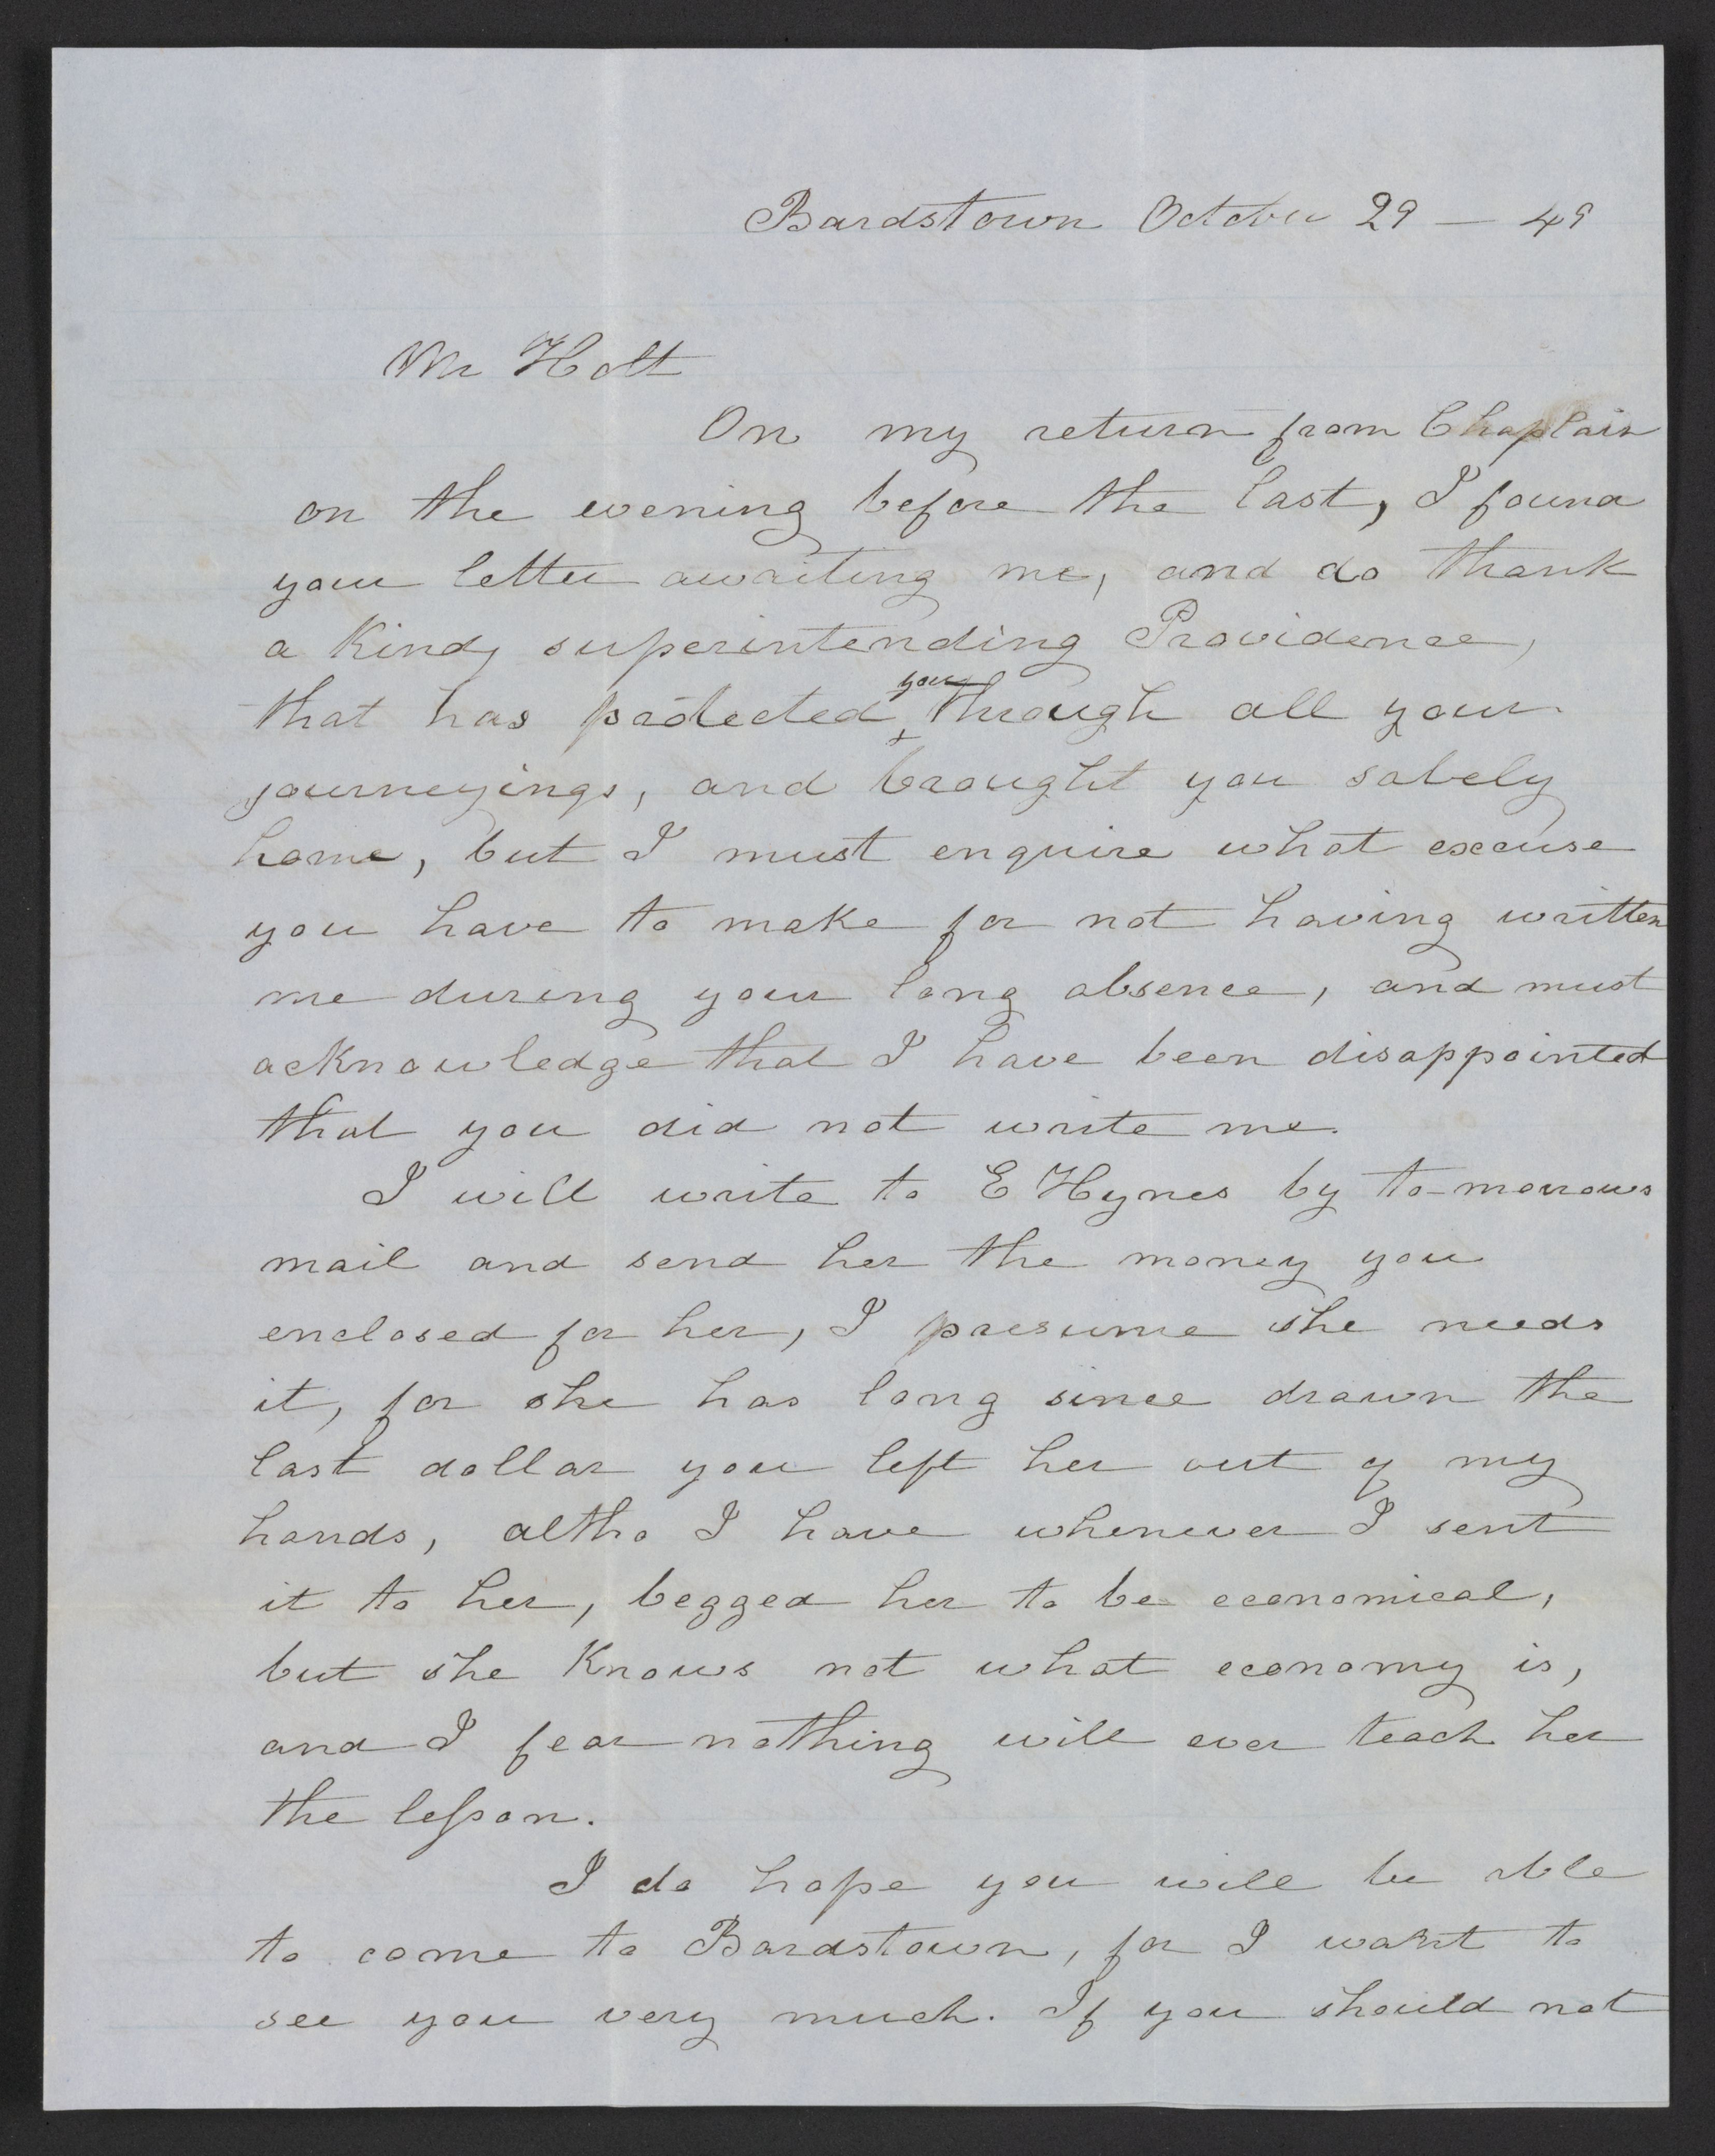 Bardstown October 29 — 49
Mr Holt
On my return from Chaplain
on the evening before the last, I found
your letter awaiting me, and do thank
a Kind, superintending Providence,
that has protected you through all your
journeyings, and brought you safely
home, but I must enquire what excuse
you have to make for not having written
me during your long absence, and must
acknowledge that I have been disappointed
that you did not write me.
I will write to E Hynes by to-morrows
mail and send her the money you
enclosed for her, I presume she needs
it, for she has long since drawn the
last dollar you left her out of my
hands, altho I have whenever I sent
it to her, begged her to be economical,
but she Knows not what economy is,
and I fear nothing will ever teach her
the lesson.
I do hope you will be able
to come to Bardstown, for I want to
see you very much. If you should not